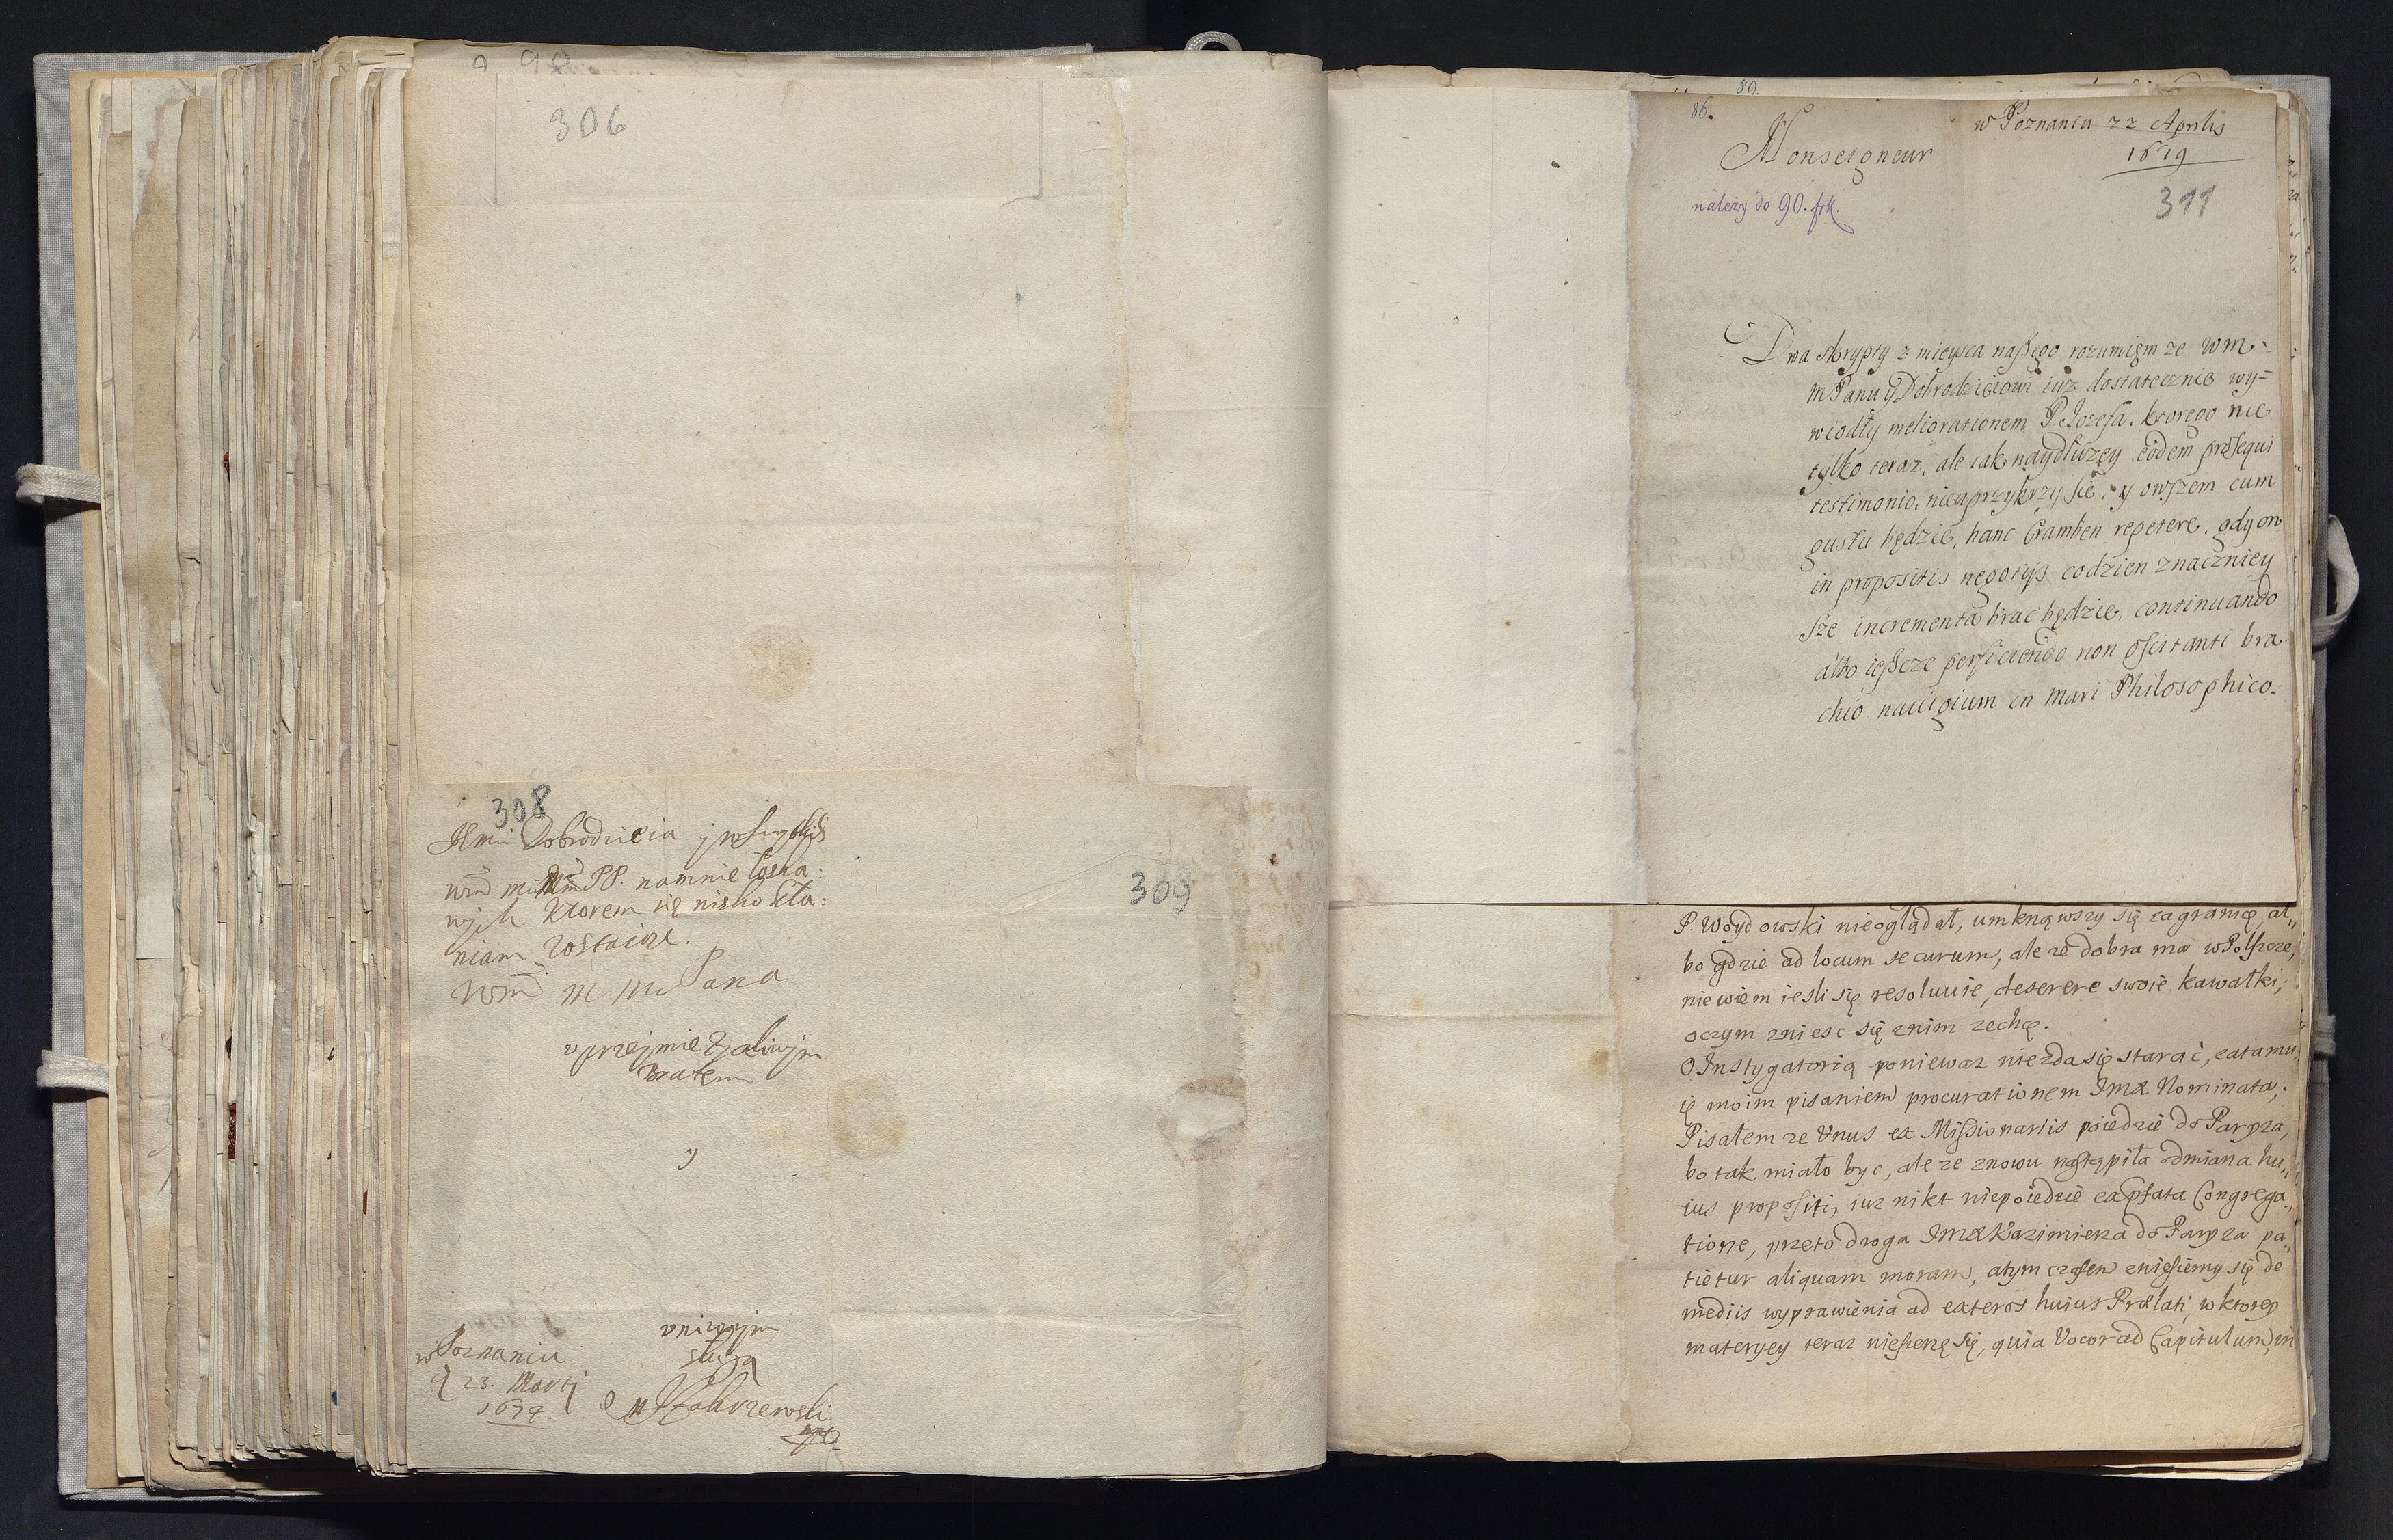 306
308
Jlmi Dobrodzieia j wszystkich
wm PP. namnie łaska:
wjch Ktorem się nisko kła:
niam zostaiąc.
Wm m m Pana
uprzejmie Zycliwjm
Bratem
y
309
uniżonjm
sługą
w Poznaniu
d 23. Martj
1679.
86.
89.
w Poznaniu 22 Aprilis
1679
Monseigneur
311
należy do 90. frk.
Dwa skrypty z mieysca naszego rozumięm ze wm
m Panu y Dobrodzieiowi iuz dostatecznie wy=
wiodły meliorationem P. Jozefa. ktorego nie
tylko teraz, ale iak naydłuzey eodem prosequi
testimonio, nieuprzykrzy sie, y owszem cum
gustu będzie, hanc Cramben repetere. gdy on
in propositis negotijs codzien znaczniey
sze incrementa brac będzie, continuando
albo ieszcze perficiendo non oscitanti bra
chio nauigium in mari Philosophico.
P. Woydowski nieoglądał, umknąwszy się zagranicę al„
bo gdzie ad locum securum, ale ze dobra ma w Polszcze,
niewiem iesli się resoluuie, deserere swoie kawałki;
oczym zniesc się znim zechcę.
O Instygatorią poniewaz niezda się starać, zatamu„
ię moim pisaniem procurationem Jmci Nominata;
Pisałem ze Unus ex Missionariis poiedzie do Paryza,
bo tak miało byc, ale ze znowu nastąpiła odmiana hu„
ius propositi, iuz nikt niepoiedzie ex pfata Congrega„
tione, przeto droga Jmci Kazimierza do Paryza pa„
tietur aliquam moram, atym czasem zniesiemy się de
mediis wyprawienia ad exteros huius Prælati, w ktorey
materyey teraz nieszerzę się, quia Vocor ad Capitulum, in